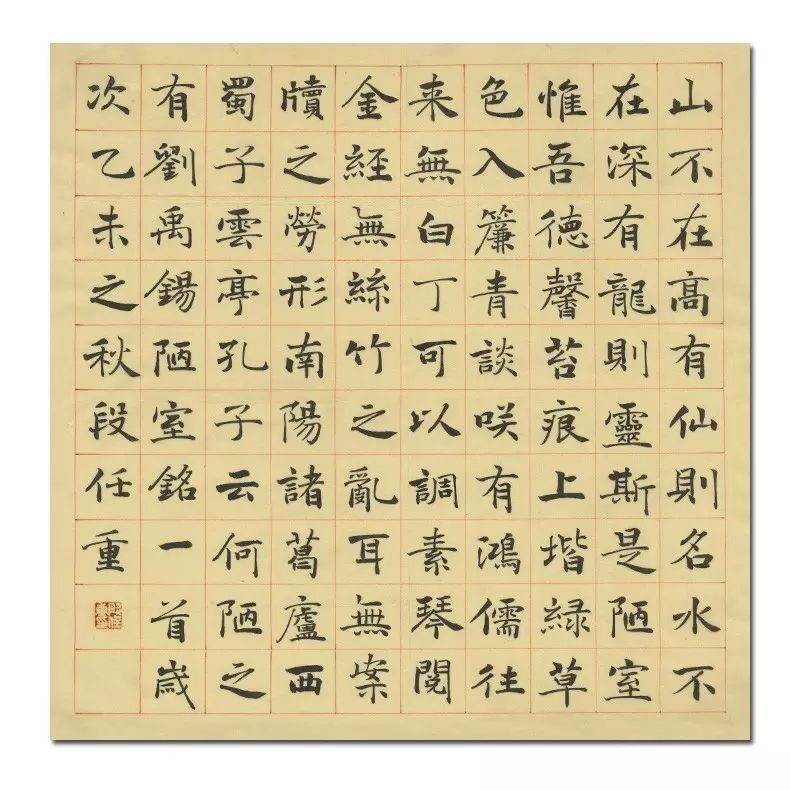 山不在高有仙則名水不
在深有龍則靈斯是陋室
惟吾德馨苔痕上堦緑草
色入簾青談咲有鴻儒往
来無白丁可以調素琴閲
金經無絲竹之亂耳無案
牘之勞形南陽諸葛廬西
蜀子雲亭孔子云何陋之
有劉禹錫陋室銘一首歲
次乙未之秋段任重